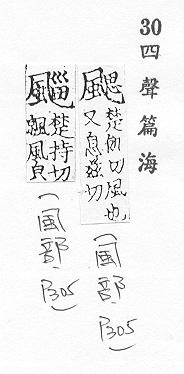 30 四聲篇海
颸
楚 切風也
又息兹切
(風部 P305)
楚持切
風皃
(風部 P305)